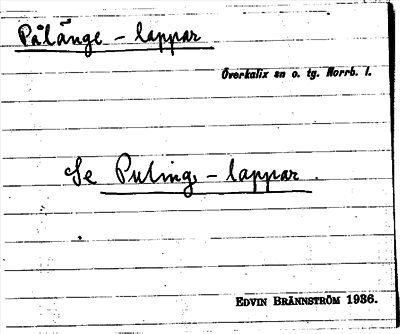 Pålänge - lappar
Överkalix sn o. tg. Norrb. l.
Se Puling - lappar.
EDVIN BRÄNNSTRÖM 1936.